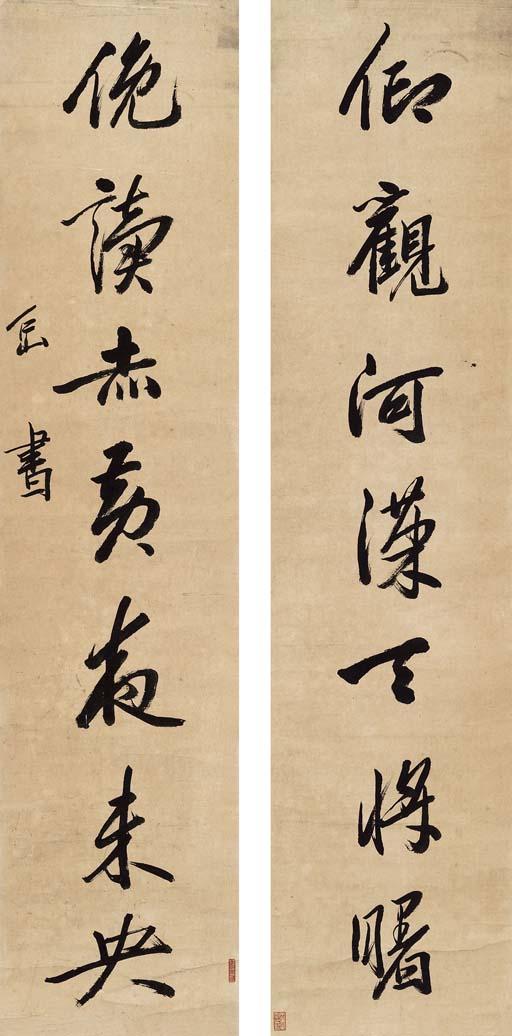 仰觀河漢天將曙
俛讀赤黃夜未央
書